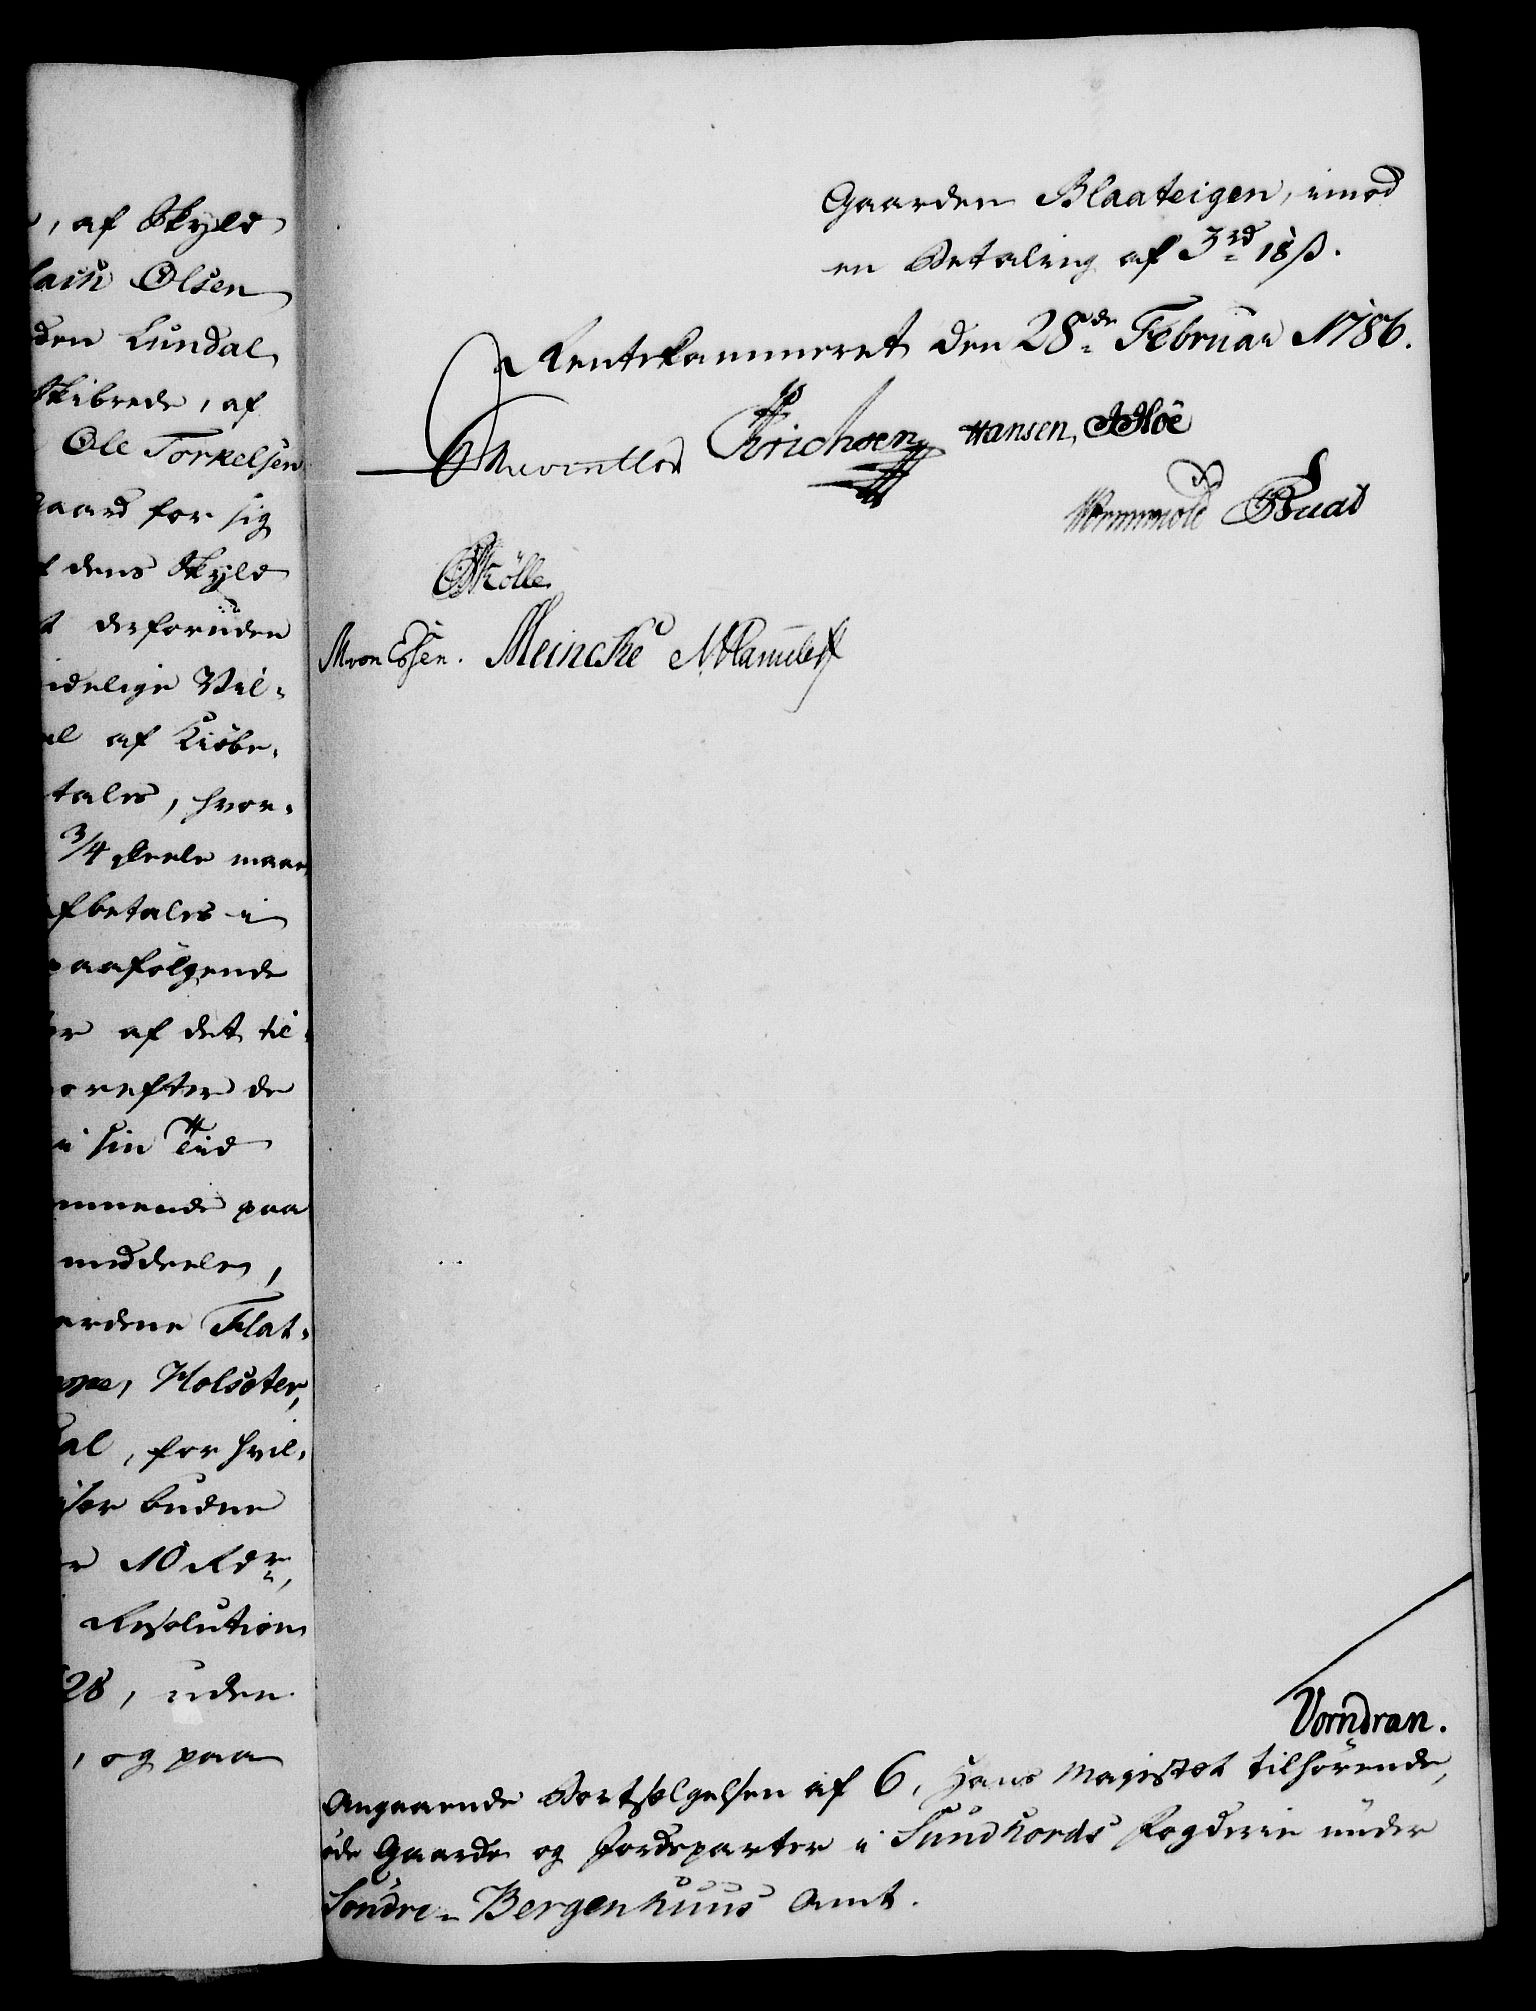 , af Skyld
lain Olsen
den Lundal
Skibrede, af
Ole Torkelsen
gaard for sig
f dens Skyld
t desforuden
idelige Vil-
el af Kiöbe-
tales, hvor-
3/4 deele maae
fbetales i
paafölgende
er af det til-
orefter de
i sin Tiid
mmende paa
meddeele,
ardene Flat-
Holsöter,
dal, for hvil-
iser budne
er 10 Rdr,
Resolution
28, uden
, og paa
Gaarden Blaateigen, imod
en Betaling af 3 rd 18 ß.
Rentekammeret den 28de Februar 1786.
Reventlow Erichsen Hansen, Hoë
Wormskiold
Kölle
M von Essen. Meincke
Vorndran.
Angaaende Bortsælgelsen af 6, Hans Majestet tilhörende,
öde Gaarde og Jordeparter i Sundhords Fogderie under
Söndre-Bergenhuus Amt.